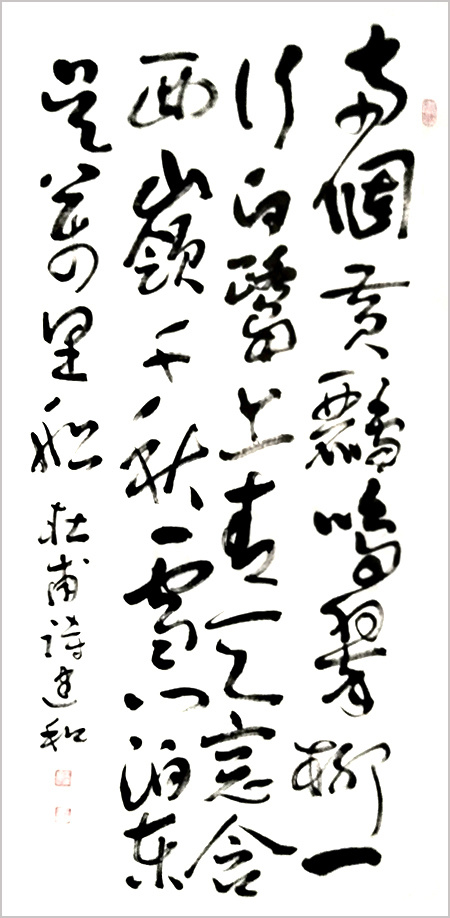 两個黄鸝鳴翠柳一
行白鷺上青天窓含
西嶺千秋雪门泊东
吴萬里船 杜甫詩建和